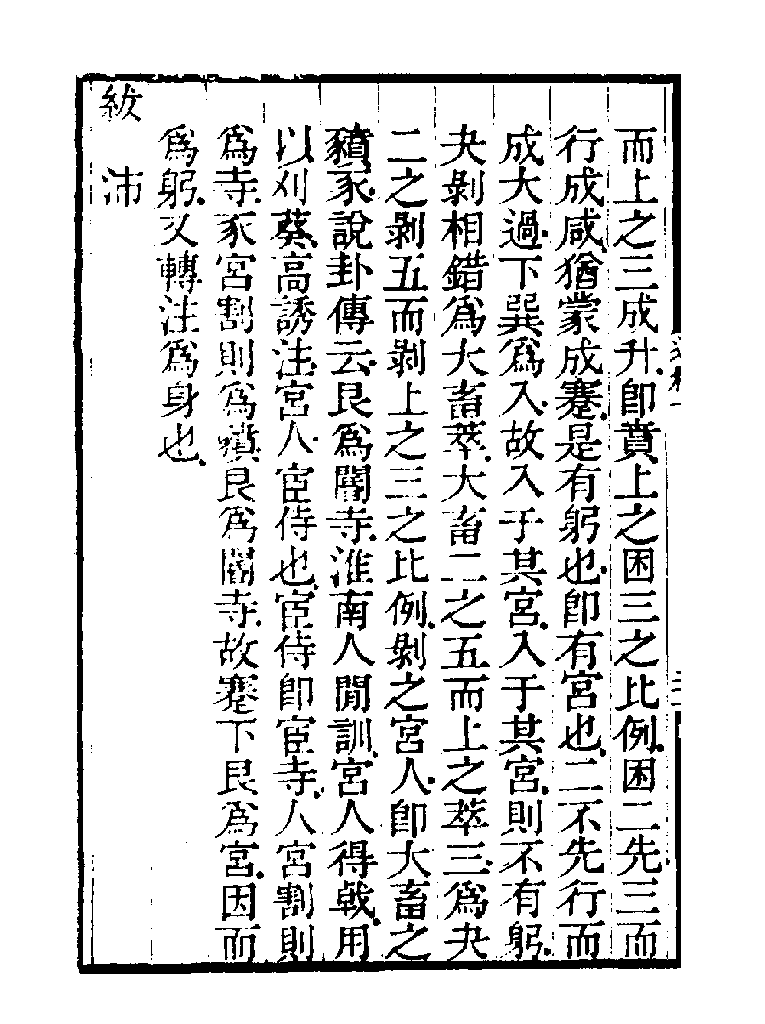 而上之三成升卽賁上之困三之比例困二先三而
行成咸猶蒙成蹇是有躬也卽有宮也二不先行而
成大過下巽爲入故入于其宮入于其宮則不有躬
夬剝相錯爲大畜萃大畜二之五而上之萃三爲夬
二之剝五而剝上之三之比例剝之宮人卽大畜之
豶豕說卦傳云艮爲閽寺淮南人閒訓宮人得戟用
以刈葵高誘注宮人宦侍也宦侍卽宦寺人宮割則
爲寺豕宮割則爲豶艮爲閽寺故蹇下艮爲宮因而
爲躬又轉注爲身也
紱　沛